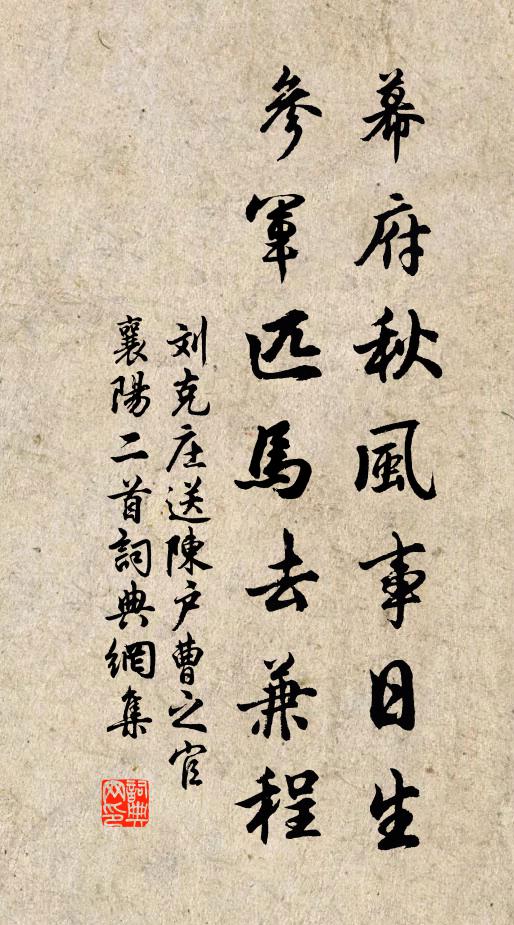 幕府秋風事日生
參軍匹馬去兼程
刘克庄送陳户曹之官
襄陽二首詞典網集
詞典网印